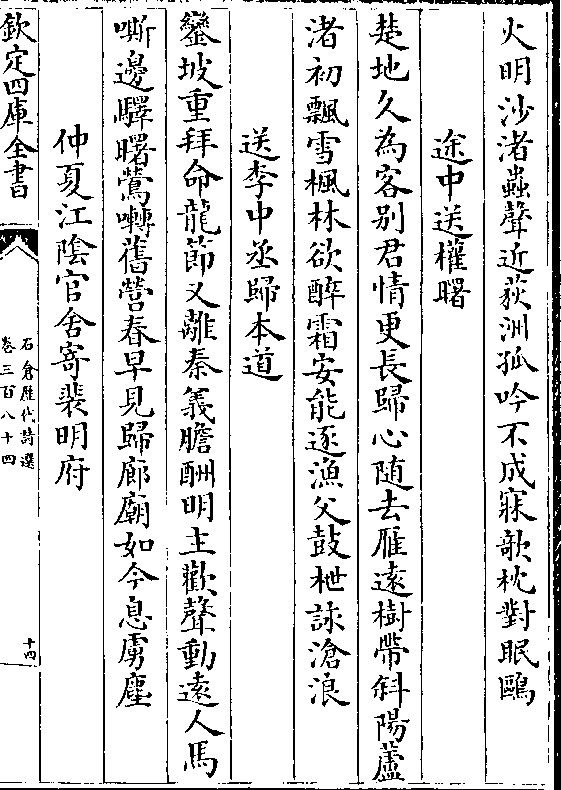 火明沙渚蟲聲近荻洲孤吟不成寐欹枕對眠鷗
途中送權曙
楚地久為客别君情更長歸心随去雁逺樹帶斜陽蘆
渚初飄雪楓林欲醉霜安能逐漁父鼓枻詠滄浪
送李中丞歸本道
鑾坡重拜命龍節又離秦義膽酬明主歡聲動逺人馬
嘶邊驛曙鶯囀舊營春早見歸廊廟如今息虜塵
仲夏江陰官舍寄裴明府
欽定四庫全書
石倉歴代詩選
卷三百八十四
十四